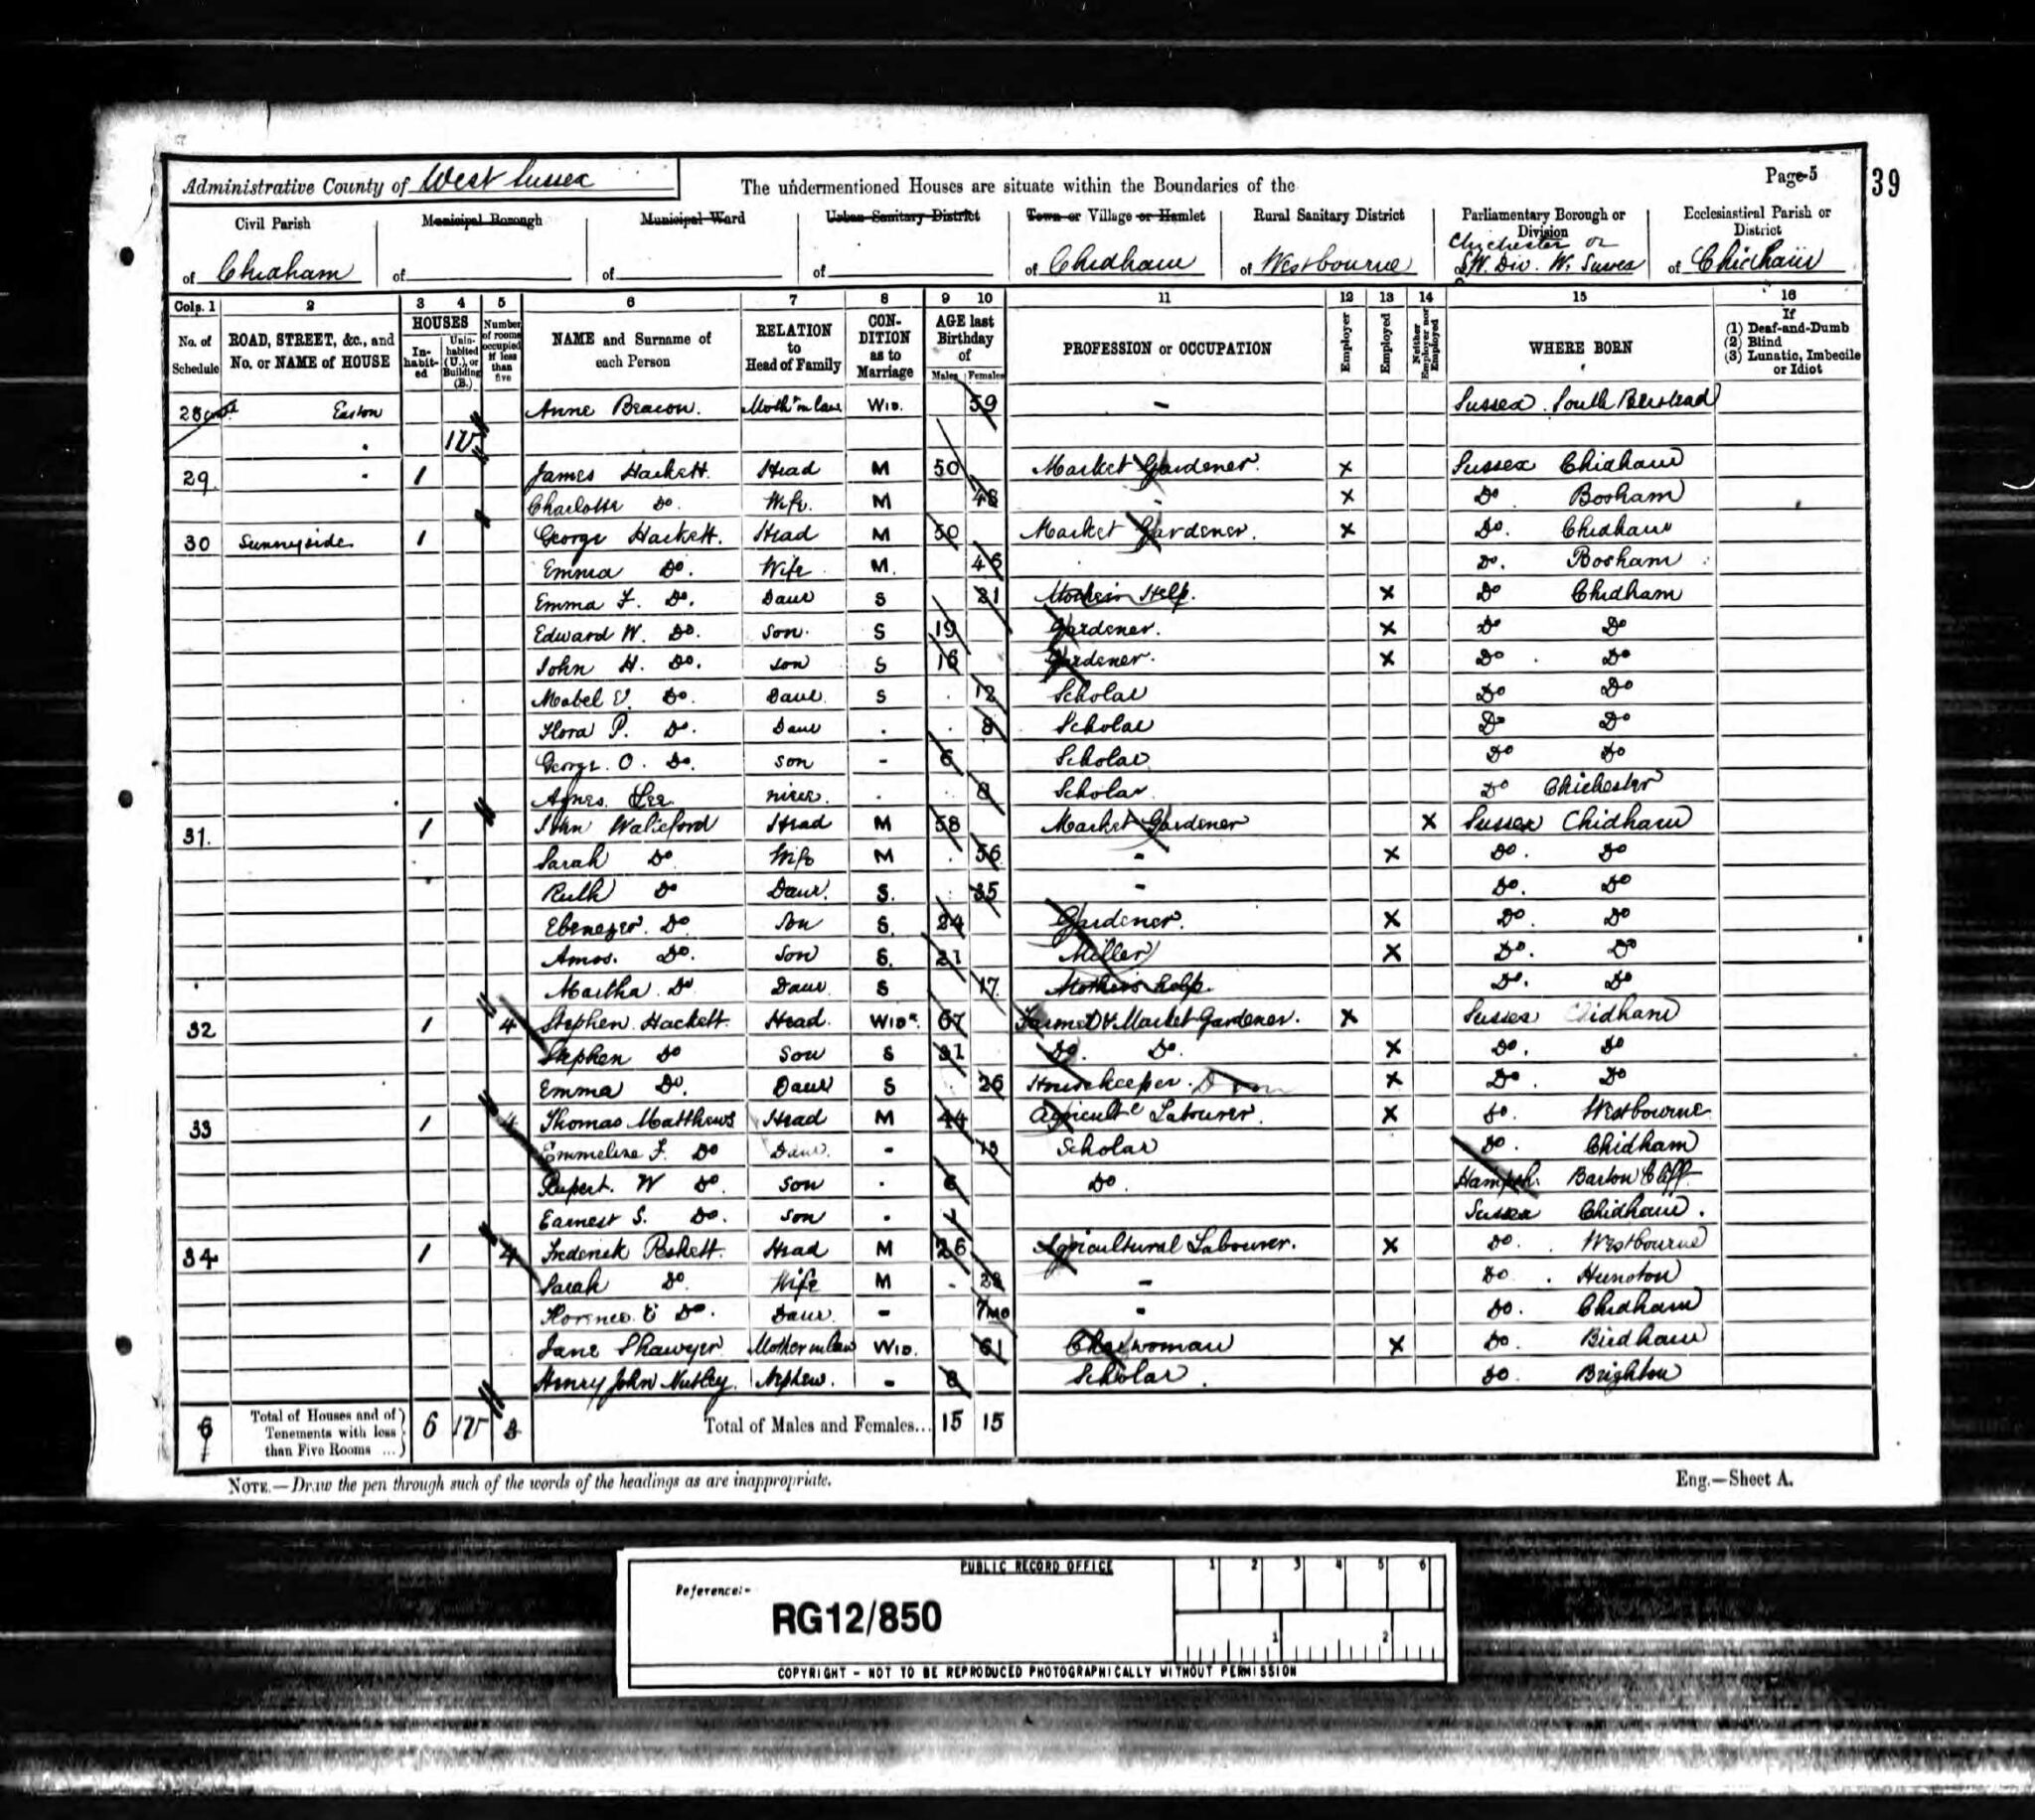 Administrative County of West Sussex
The undermentioned Houses are situate within the Boundaries of the
Page 5
39
Civil Parish
Municipal Borough
Municipal Ward
Urban Sanitary District
Town or Village or Hamlet
Rural Sanitary District
Parliamentary Borough or Division
Ecclesiastical Parish or District
of Chidham
of
of
of
of Chidham
of Westbourne
Chichester or
of S.W. Div. W. Sussex
of Chidham
Cols. 1 2 3 4 5 6 7 8 9 10 11 12 13 14 15 16
No. of Schedule
ROAD, STREET, &c., and No. or NAME of HOUSE
HOUSES
Inhabited
Uninhabited (U.), or Building (B.)
Number of rooms occupied if less than five
NAME and Surname of each Person
RELATION to Head of Family
CONDITION as to Marriage
AGE last Birthday of
Males Females
PROFESSION or OCCUPATION
Employer
Employed
Neither Employer nor Employed
WHERE BORN
If
(1) Deaf-and-Dumb
(2) Blind
(3) Lunatic, Imbecile or Idiot
28 cont Easton Anne Beacon. Moth r in law Wid. 59 - Sussex. South Berstead
1 U
29 1 James Hackett. Head M 50 Market Gardener. x Sussex Chidham
Charlotte Do. Wife. M 48 x Do. Bosham
30 Sunnyside 1 George Hackett. Head M 50 Market Gardener. x Do. Chidham
Emma Do. Wife M. 46 Do. Bosham
Emma F. Do. Daur S 21 Mothers Help. x Do Chidham
Edward W. Do. Son. S 19 Gardener. x Do Do
John H. Do. Son S 16 Gardener. x Do. Do
Mabel V. Do. Daur S 12 Scholar Do Do
Flora P. Do. Daur . 8 Scholar Do Do
George. O. Do. Son - 6 Scholar Do Do
Agnes. Lee niece. . 8 Scholar Do Chichester
31. 1 John Wakeford Head M 58 Market Gardener x Sussex Chidham
Sarah Do Wife M 56 - x Do. Do
Ruth Do Daur. S. 35 - Do. Do
Ebenezer. Do. Son S. 24 Gardener. x Do. Do
Amos. Do. Son S. 21 Miller x Do. Do
Martha. Do Daur S 17. Mothers help. Do. Do
32 1 4 Stephen. Hackett. Head. Widr. 67 Farmer & Market Gardener. x Sussex Chidham
Stephen Do Son S 31 Do. Do. x Do. Do
Emma Do. Daur S 26 Housekeeper. Dom x Do. Do
33 1 4 Thomas Matthews Head M 44 Agricultl Labourer. x Do. Westbourne
Emmeline F. Do Daur. - 13 Scholar Do. Chidham
Rupert. W Do. Son . 6 Do. Hampsh. Barton Cliff
Earnest S. Do. Son . Sussex Chidham.
34 1 4 Frederick Peskett. Head M 26 Agricultural Labourer. x Do. Westbourne
Sarah Do. Wife M - Do. Hunston
Florence. E Do. Daur. - 7 mo - Do. Chidham
Jane Shawyer Mother in law Wid. 61 Charwoman x Do. Birdham
Henry John Nutley. Nephew. - 8 Scholar. Do. Brighton
6 Total of Houses and of Tenements with less than Five Rooms ... 6 1U 3 Total of Males and Females... 15 15
NOTE.—Draw the pen through such of the words of the headings as are inappropriate.
Eng.—Sheet A.
PUBLIC RECORD OFFICE
Reference:-
RG12/850
1 2 3 4 5 6
1 2
COPYRIGHT - NOT TO BE REPRODUCED PHOTOGRAPHICALLY WITHOUT PERMISSION